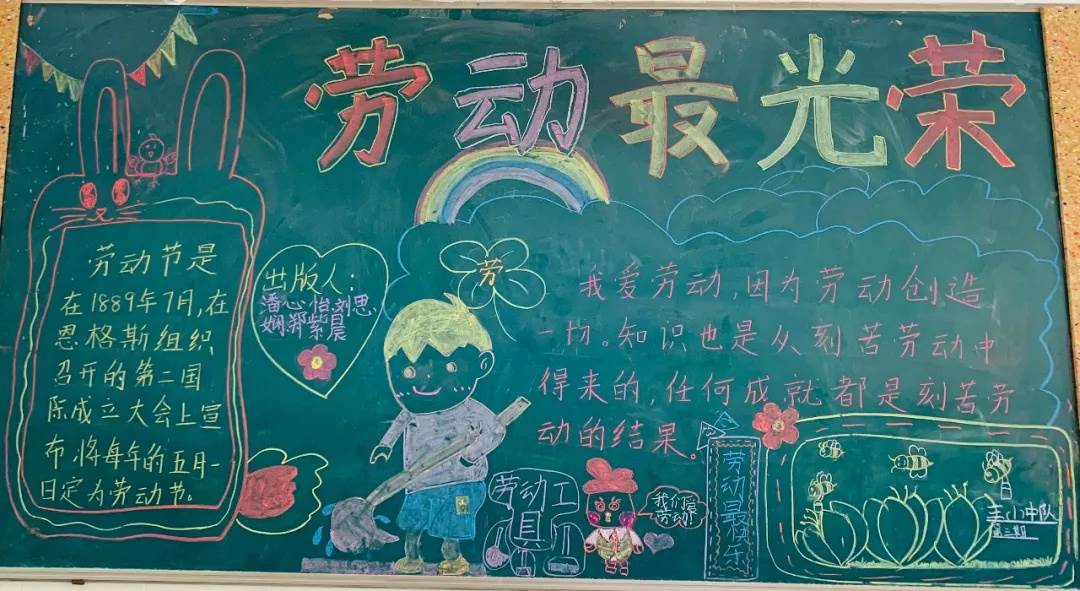 劳动最光荣
劳动节是
在1889年7月,在
恩格斯组织
召开的第二国
际成立大会上宣
布,将每年的五月一
日定为劳动节。
出版人:
潘心怡.刘思.
娴.郑紫晨
劳
我爱劳动,因为劳动创造
一切。知识也是从刻苦劳动中
得来的,任何成就都是刻苦劳
动的结果。
劳动工
具
我们爱
劳动!
劳动最快乐
三小中队
第三期